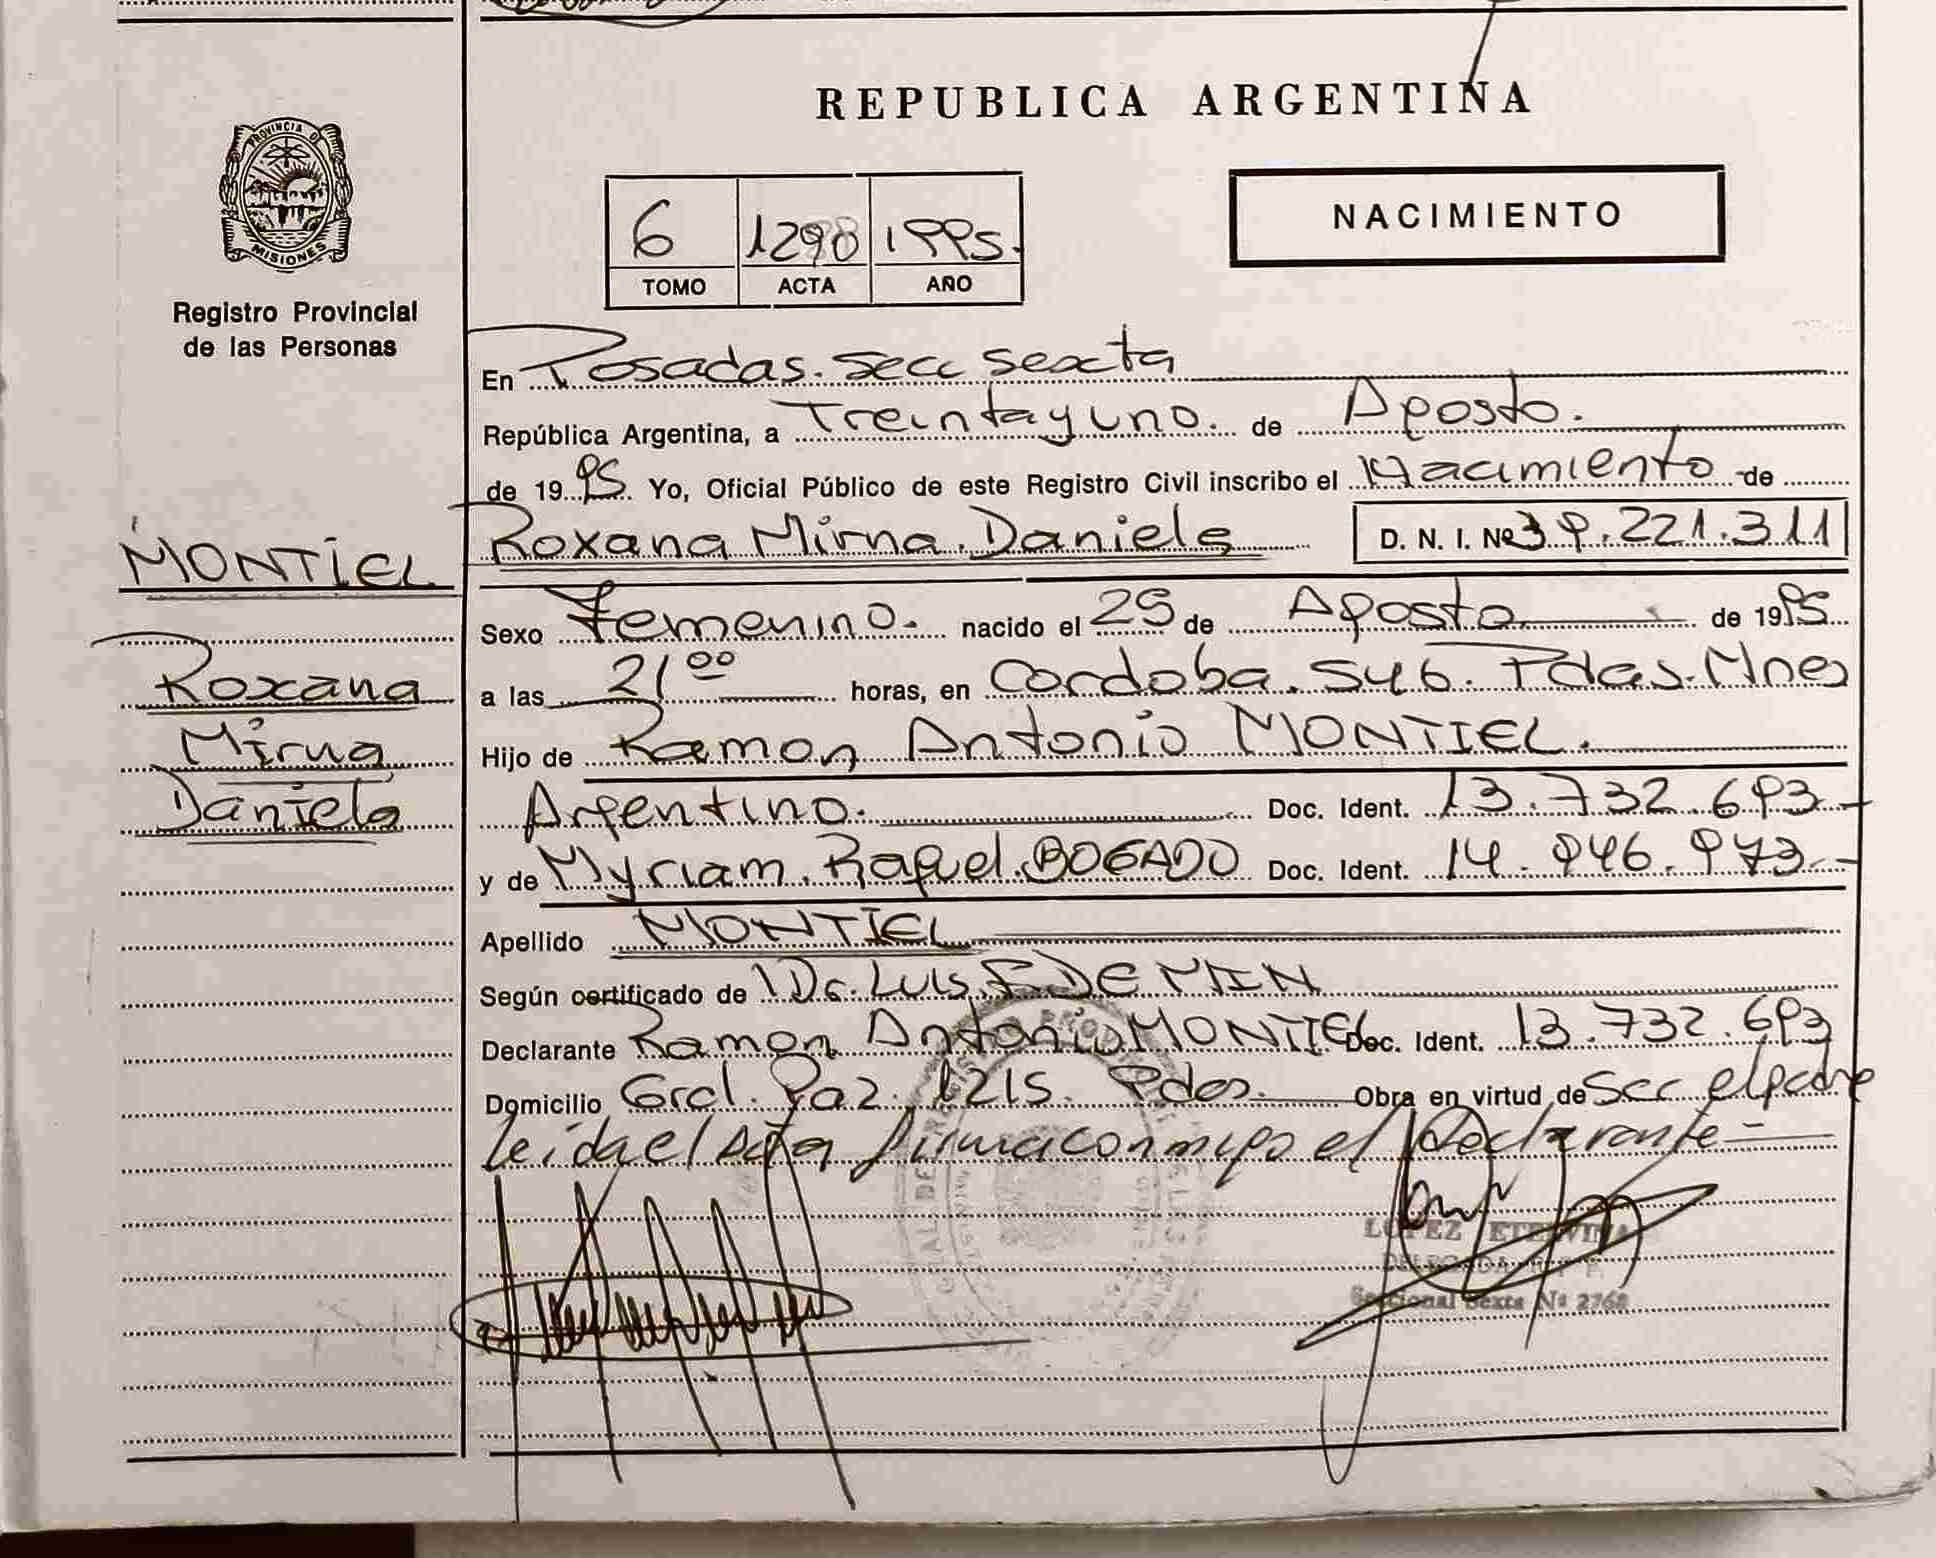 REPUBLICA ARGENTINA
PROVINCIA DE
MISIONES
Registro Provincial
de las Personas
6 1298 1995.
TOMO ACTA AÑO
NACIMIENTO
En Posadas. Secc Sexta
República Argentina, a Treinta y uno. de Agosto.
de 1995. Yo, Oficial Público de este Registro Civil inscribo el Nacimiento de
Roxana Mirna Daniela D. N. I. Nº 39.221.311
MONTIEL
Roxana
Mirna
Daniela
Sexo Femenino. nacido el 25 de Agosto de 1995
a las 21 00 horas, en Cordoba. 546. Pdas. Mnes
Hijo de Ramon Antonio MONTIEL.
Argentino. Doc. Ident. 13.732.693
y de Myriam. Raquel. BOGADO Doc. Ident. 14.946.973.-
Apellido MONTIEL
Según certificado de Dr. Luis. E. DEMIN
Declarante Ramon Antonio MONTIEL Doc. Ident. 13.732.693
Domicilio Gral. Paz. 1215. Pdas. Obra en virtud de Ser el padre
leida el Acta firma conmigo el Declarante -
LOPEZ ETELVINA
DELEGADA
Seccional Sexta Nº 2768